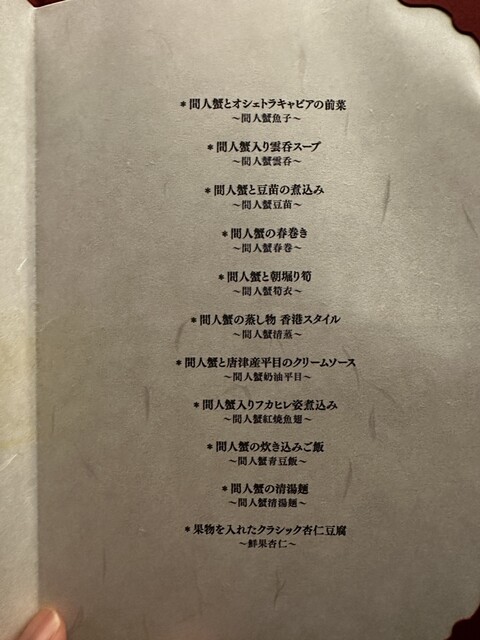 ＊間人蟹とオシェトラキャビアの前菜
～間人蟹魚子～
＊間人蟹入り雲呑スープ
～間人蟹雲呑～
＊間人蟹と豆苗の煮込み
～間人蟹豆苗～
＊間人蟹の春巻き
～間人蟹春巻～
＊間人蟹と朝堀り筍
～間人蟹筍衣～
＊間人蟹の蒸し物 香港スタイル
～間人蟹清蒸～
＊間人蟹と唐津産平目のクリームソース
～間人蟹奶油平目～
＊間人蟹入りフカヒレ姿煮込み
～間人蟹紅燒魚翅～
＊間人蟹の炊き込みご飯
～間人蟹青豆飯～
＊間人蟹の清湯麺
～間人蟹清湯麺～
＊果物を入れたクラシック杏仁豆腐
～鮮果杏仁～